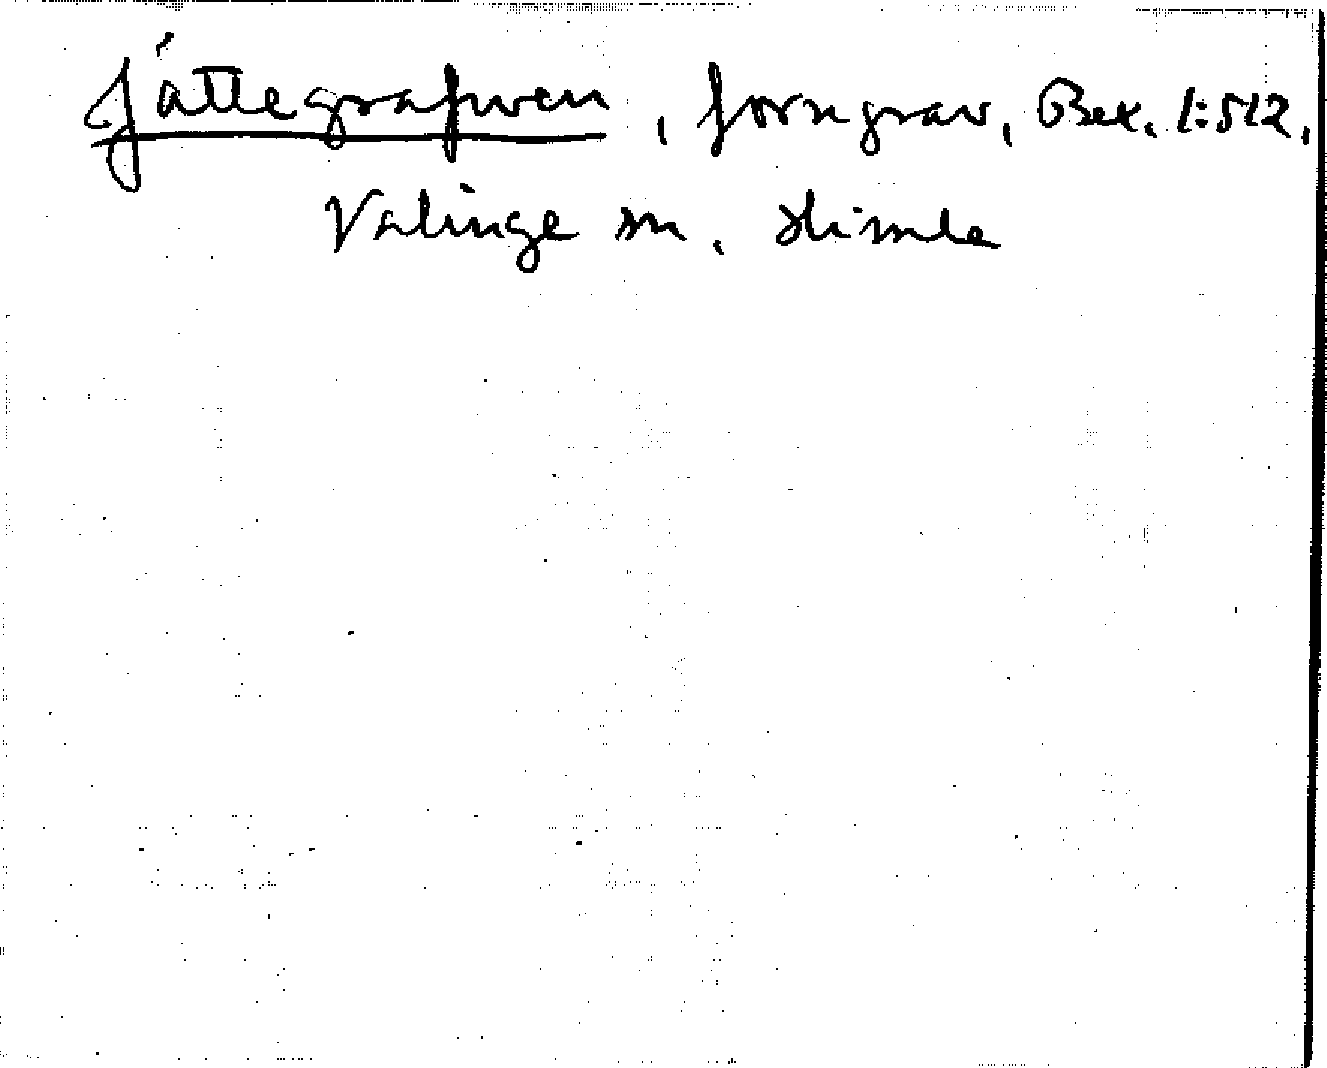 Jättegrafwen, forngrav, Bex. 1:512,
Valinge sn. Himle